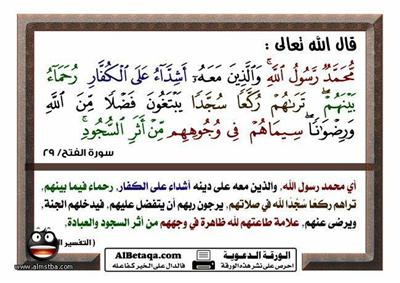 قال الله تعالى :
مُّحَمَّدٌ رَّسُولُ اللَّهِ ۚ وَالَّذِينَ مَعَهُ أَشِدَّاءُ عَلَى الْكُفَّارِ رُحَمَاءُ
بَيْنَهُمْ ۖ تَرَاهُمْ رُكَّعًا سُجَّدًا يَبْتَغُونَ فَضْلًا مِّنَ اللَّهِ
وَرِضْوَانًا ۖ سِيمَاهُمْ فِي وُجُوهِهِم مِّنْ أَثَرِ السُّجُودِ ۚ
سورة الفتح/ ٢٩
أي محمد رسول الله, والذين معه على دينه أشداء على الكفار, رحماء فيما بينهم,
تراهم ركعًا سُجَّدًا لله في صلاتهم, يرجون ربهم أن يتفضل عليهم, فيدخلهم الجنة,
ويرضى عنهم, علامة طاعتهم لله ظاهرة في وجههم من أثر السجود والعبادة,
( التفسير
الورقة الدعوية
AlBetaqa.com
احرص على نشر هذه الورقة
فالدال على الخير كفاعله
www.almstba.com